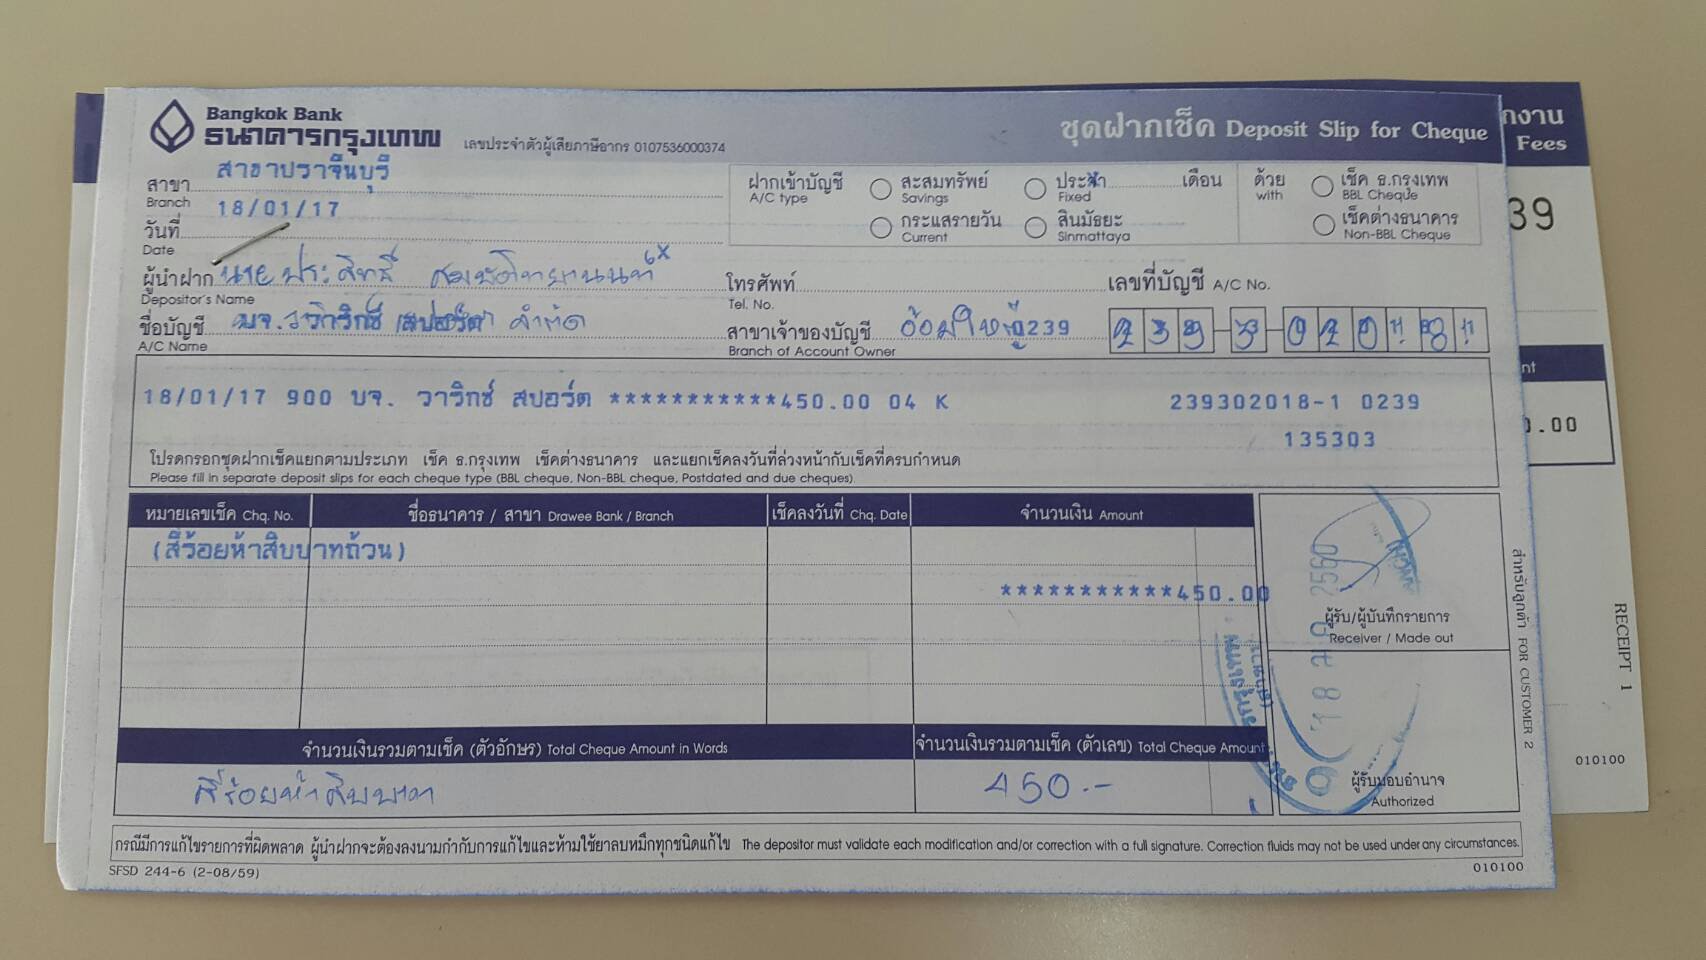 Bangkok Bank
ธนาคารกรุงเทพ
เลขประจำตัวผู้เสียภาษีอากร 0107536000374
ชุดฝากเช็ค Deposit Slip for Cheque
กงาน
Fees
สาขา สาขาปราจีนบุรี
Branch
วันที่ 18/01/17
Date
ฝากเข้าบัญชี
A/C type
สะสมทรัพย์
Savings
ประจำ เดือน
Fixed
กระแสรายวัน
Current
สินมัธยะ
Sinmattaya
ด้วย
with
เช็ค ธ.กรุงเทพ
BBL Cheque
เช็คต่างธนาคาร
Non-BBL Cheque
39
ผู้นำฝาก นาย ประสิทธิ์
Depositor's Name
โทรศัพท์
Tel. No.
เลขที่บัญชี A/C No.
ชื่อบัญชี บจ. วาริกซ์ สปอร์ต จำกัด
A/C Name
สาขาเจ้าของบัญชี อ้อมใหญ่ 0239
Branch of Account Owner
239-3-020
nt
18/01/17 900 บจ. วาริกซ์ สปอร์ต ***********450.00 04 K 239302018-1 0239
135303
.00
โปรดกรอกชุดฝากเช็คแยกตามประเภท เช็ค ธ.กรุงเทพ เช็คต่างธนาคาร และแยกเช็คลงวันที่ล่วงหน้ากับเช็คที่ครบกำหนด
Please fill in separate deposit slips for each cheque type (BBL cheque, Non-BBL cheque, Postdated and due cheques)
หมายเลขเช็ค Chq. No.
ชื่อธนาคาร / สาขา Drawee Bank / Branch
เช็คลงวันที่ Chq. Date
จำนวนเงิน Amount
(สี่ร้อยห้าสิบบาทถ้วน)
***********450.00
18 ม.ค. 2560
ผู้รับ/ผู้บันทึกรายการ
Receiver / Made out
จำนวนเงินรวมตามเช็ค (ตัวอักษร) Total Cheque Amount in Words
จำนวนเงินรวมตามเช็ค (ตัวเลข) Total Cheque Amount
สี่ร้อยห้าสิบบาท
450.-
ผู้รับมอบอำนาจ
Authorized
สำหรับลูกค้า FOR CUSTOMER 2
RECEIPT 1
010100
กรณีมีการแก้ไขรายการที่ผิดพลาด ผู้นำฝากจะต้องลงนามกำกับการแก้ไขและห้ามใช้ยาลบหมึกทุกชนิดแก้ไข The depositor must validate each modification and/or correction with a full signature. Correction fluids may not be used under any circumstances.
SFSD 244-6 (2-08/59)
010100